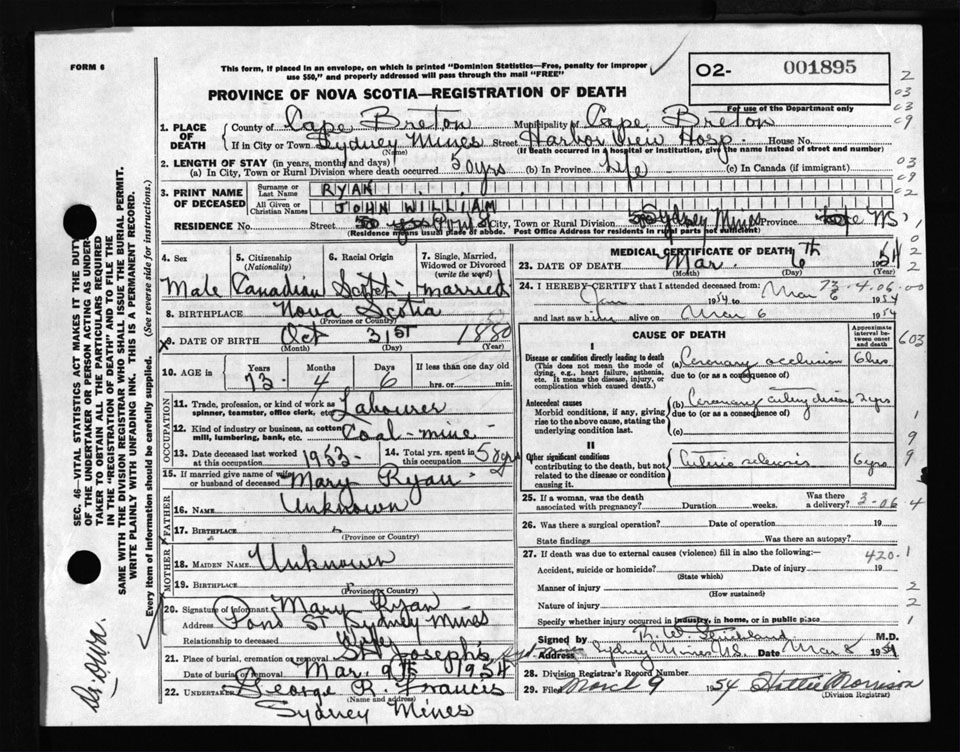 FORM 6
This form, if placed in an envelope, on which is printed "Dominion Statistics—Free, penalty for improper
use $50," and properly addressed will pass through the mail "FREE"
O2- 001895
For use of the Department only
PROVINCE OF NOVA SCOTIA—REGISTRATION OF DEATH
1. PLACE OF DEATH
County of Cape Breton Municipality of Cape Breton
If in City or Town Sydney Mines Street Harbor View Hosp. House No.
(Name) (If death occurred in a hospital or institution, give the name instead of street and number)
2. LENGTH OF STAY (in years, months and days)
(a) In City, Town or Rural Division where death occurred 50 yrs (b) In Province Life (c) In Canada (if immigrant)
3. PRINT NAME OF DECEASED
Surname or Last Name RYAN
All Given or Christian Names JOHN WILLIAM
RESIDENCE No. Street City, Town or Rural Division Sydney Mines Province NS
(Residence means usual place of abode. Post Office Address for residents in rural parts not sufficient)
4. Sex 5. Citizenship (Nationality) 6. Racial Origin 7. Single, Married, Widowed or Divorced (write the word)
Male Canadian Scotch married
8. BIRTHPLACE Nova Scotia
(Province or Country)
9. DATE OF BIRTH Oct 31st 1880
(Month) (Day) (Year)
10. AGE in Years Months Days If less than one day old
73 4 6 hrs. or min.
OCCUPATION
11. Trade, profession, or kind of work as spinner, teamster, office clerk, etc. Labourer
12. Kind of industry or business, as cotton mill, lumbering, bank, etc. Coal-mine
13. Date deceased last worked at this occupation 1953 14. Total yrs. spent in this occupation 58 yrs
15. If married give name of wife or husband of deceased Mary Ryan
FATHER
16. Name Unknown
17. Birthplace
(Province or Country)
MOTHER
18. Maiden Name Unknown
19. Birthplace
(Province or Country)
20. Signature of informant Mary Ryan
Address Pond St Sydney Mines
Relationship to deceased Wife
21. Place of burial, cremation or removal St Joseph's
Date of burial or removal Mar. 9th 1954
22. Undertaker George R. Francis
(Name and address)
Sydney Mines
MEDICAL CERTIFICATE OF DEATH
23. DATE OF DEATH Mar. 6th 1954
(Month) (Day) (Year)
73-4-06.00
24. I HEREBY CERTIFY that I attended deceased from:
Jan 1954 to Mar 6 1954
and last saw him alive on Mar 6 1954
CAUSE OF DEATH
Approximate interval between onset and death
I
Disease or condition directly leading to death
(This does not mean the mode of dying, e.g., heart failure, asthenia, etc. It means the disease, injury, or complication which caused death.)
(a) Coronary occlusion 6 hrs
due to (or as a consequence of)
Antecedent causes
Morbid conditions, if any, giving rise to the above cause, stating the underlying condition last.
(b) Coronary artery disease 2 yrs
due to (or as a consequence of)
(c)
II
Other significant conditions
contributing to the death, but not related to the disease or condition causing it.
Arteriosclerosis 6 yrs
25. If a woman, was the death associated with pregnancy? Duration weeks. Was there a delivery?
3-06-4
26. Was there a surgical operation? Date of operation 19
State findings Was there an autopsy?
27. If death was due to external causes (violence) fill in also the following:—
420-1
Accident, suicide or homicide? Date of injury 19
(State which)
Manner of injury
(How sustained)
Nature of injury
Specify whether injury occurred in industry, in home, or in public place
Signed by R. W. Strickland M.D.
Address Sydney Mines N.S. Date Mar 8 1954
28. Division Registrar's Record Number
29. Filed March 9 1954 Hattie Morrison
Division Registrar
SEC. 46—VITAL STATISTICS ACT MAKES IT THE DUTY
OF THE UNDERTAKER OR PERSON ACTING AS UNDER-
TAKER TO OBTAIN ALL THE PARTICULARS REQUIRED
IN THE "REGISTRATION OF DEATH" AND TO FILE THE
SAME WITH THE DIVISION REGISTRAR WHO SHALL ISSUE THE BURIAL PERMIT.
WRITE PLAINLY WITH UNFADING INK. THIS IS A PERMANENT RECORD.
Every item of information should be carefully supplied. (See reverse side for instructions.)
2
03
03
09
03
09
02
1
0
2
2
603
1
9
9
1
2
2
1